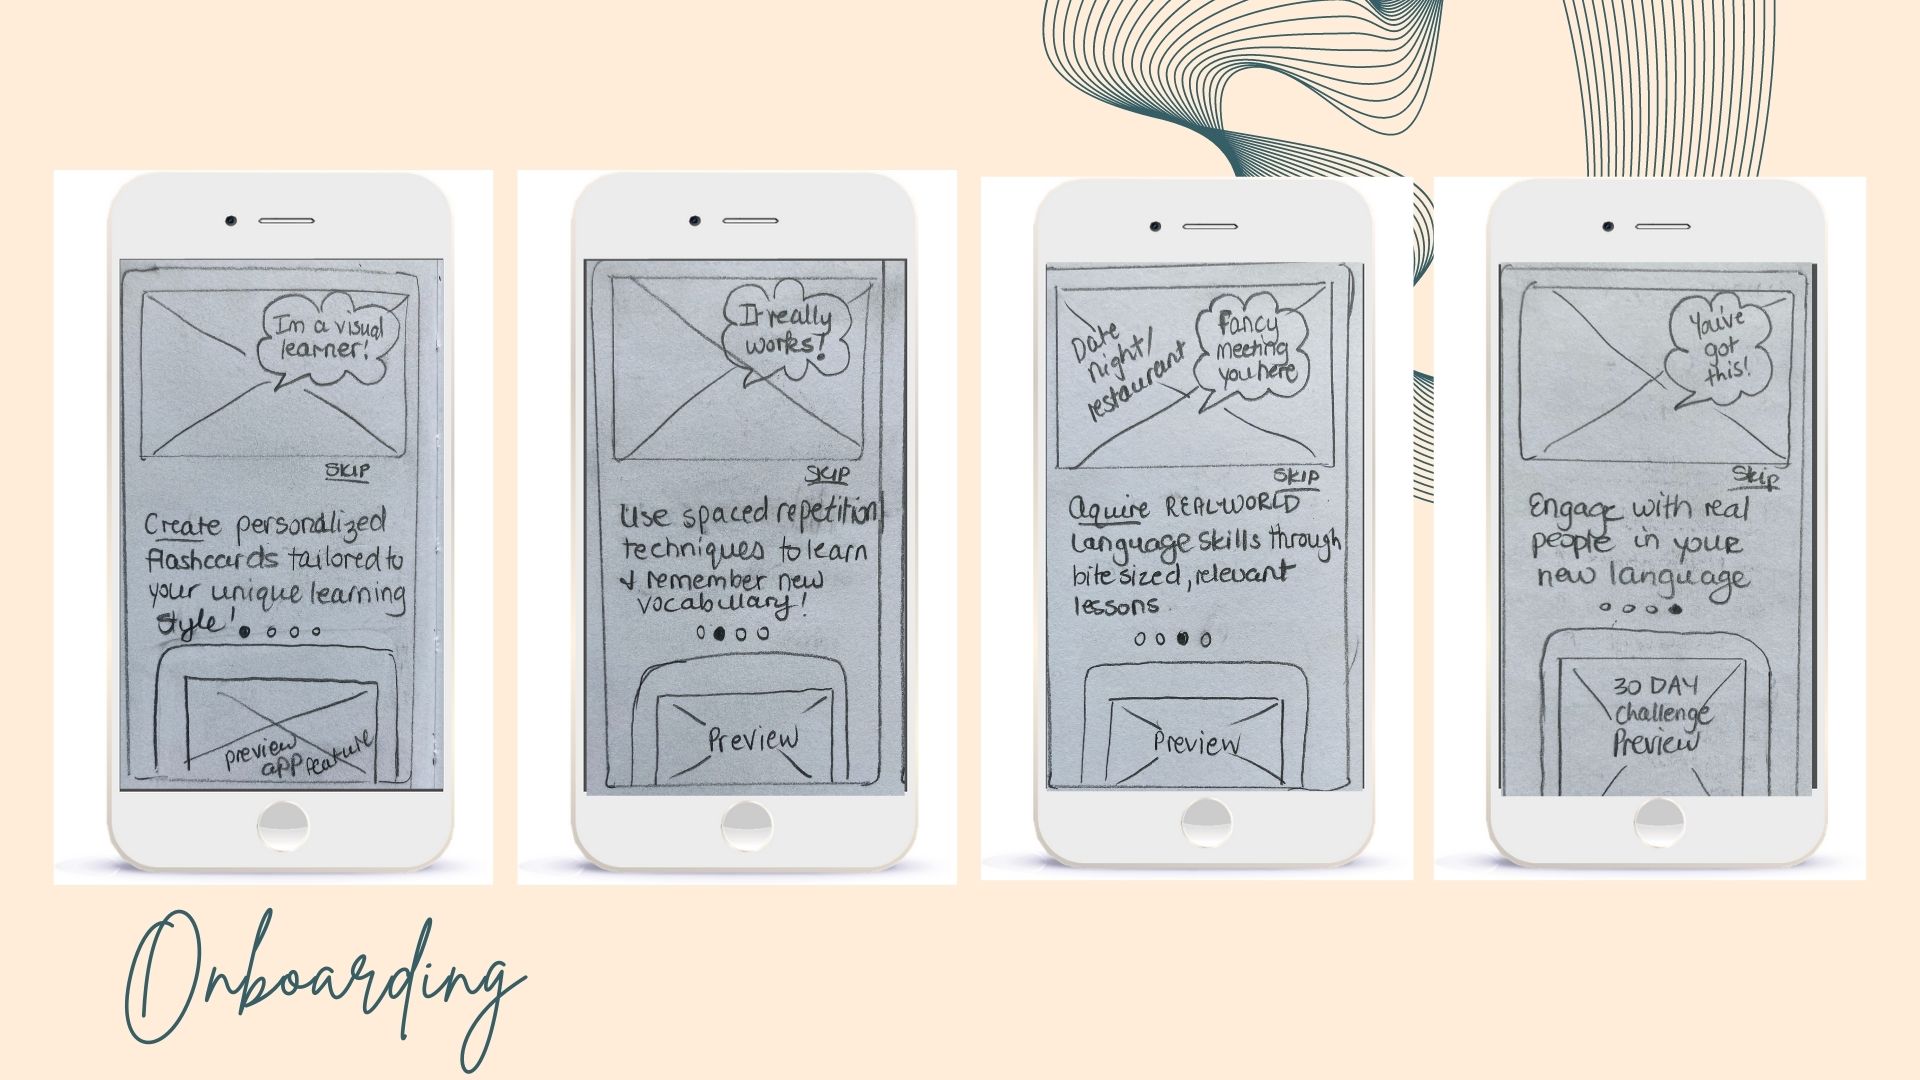 I'm a visual
learner!
SKIP
Create personalized
flashcards tailored to
your unique learning
style!
preview
app feature
It really
works!
SKIP
Use spaced repetition
techniques to learn
& remember new
vocabullary!
Preview
Date
night/
restaurant
Fancy
meeting
you here
SKIP
Aquire REAL-WORLD
Language skills through
bite sized, relevant
lessons
Preview
You've
got
this!
Skip
Engage with real
people in your
new language
30 DAY
Challenge
Preview
Onboarding